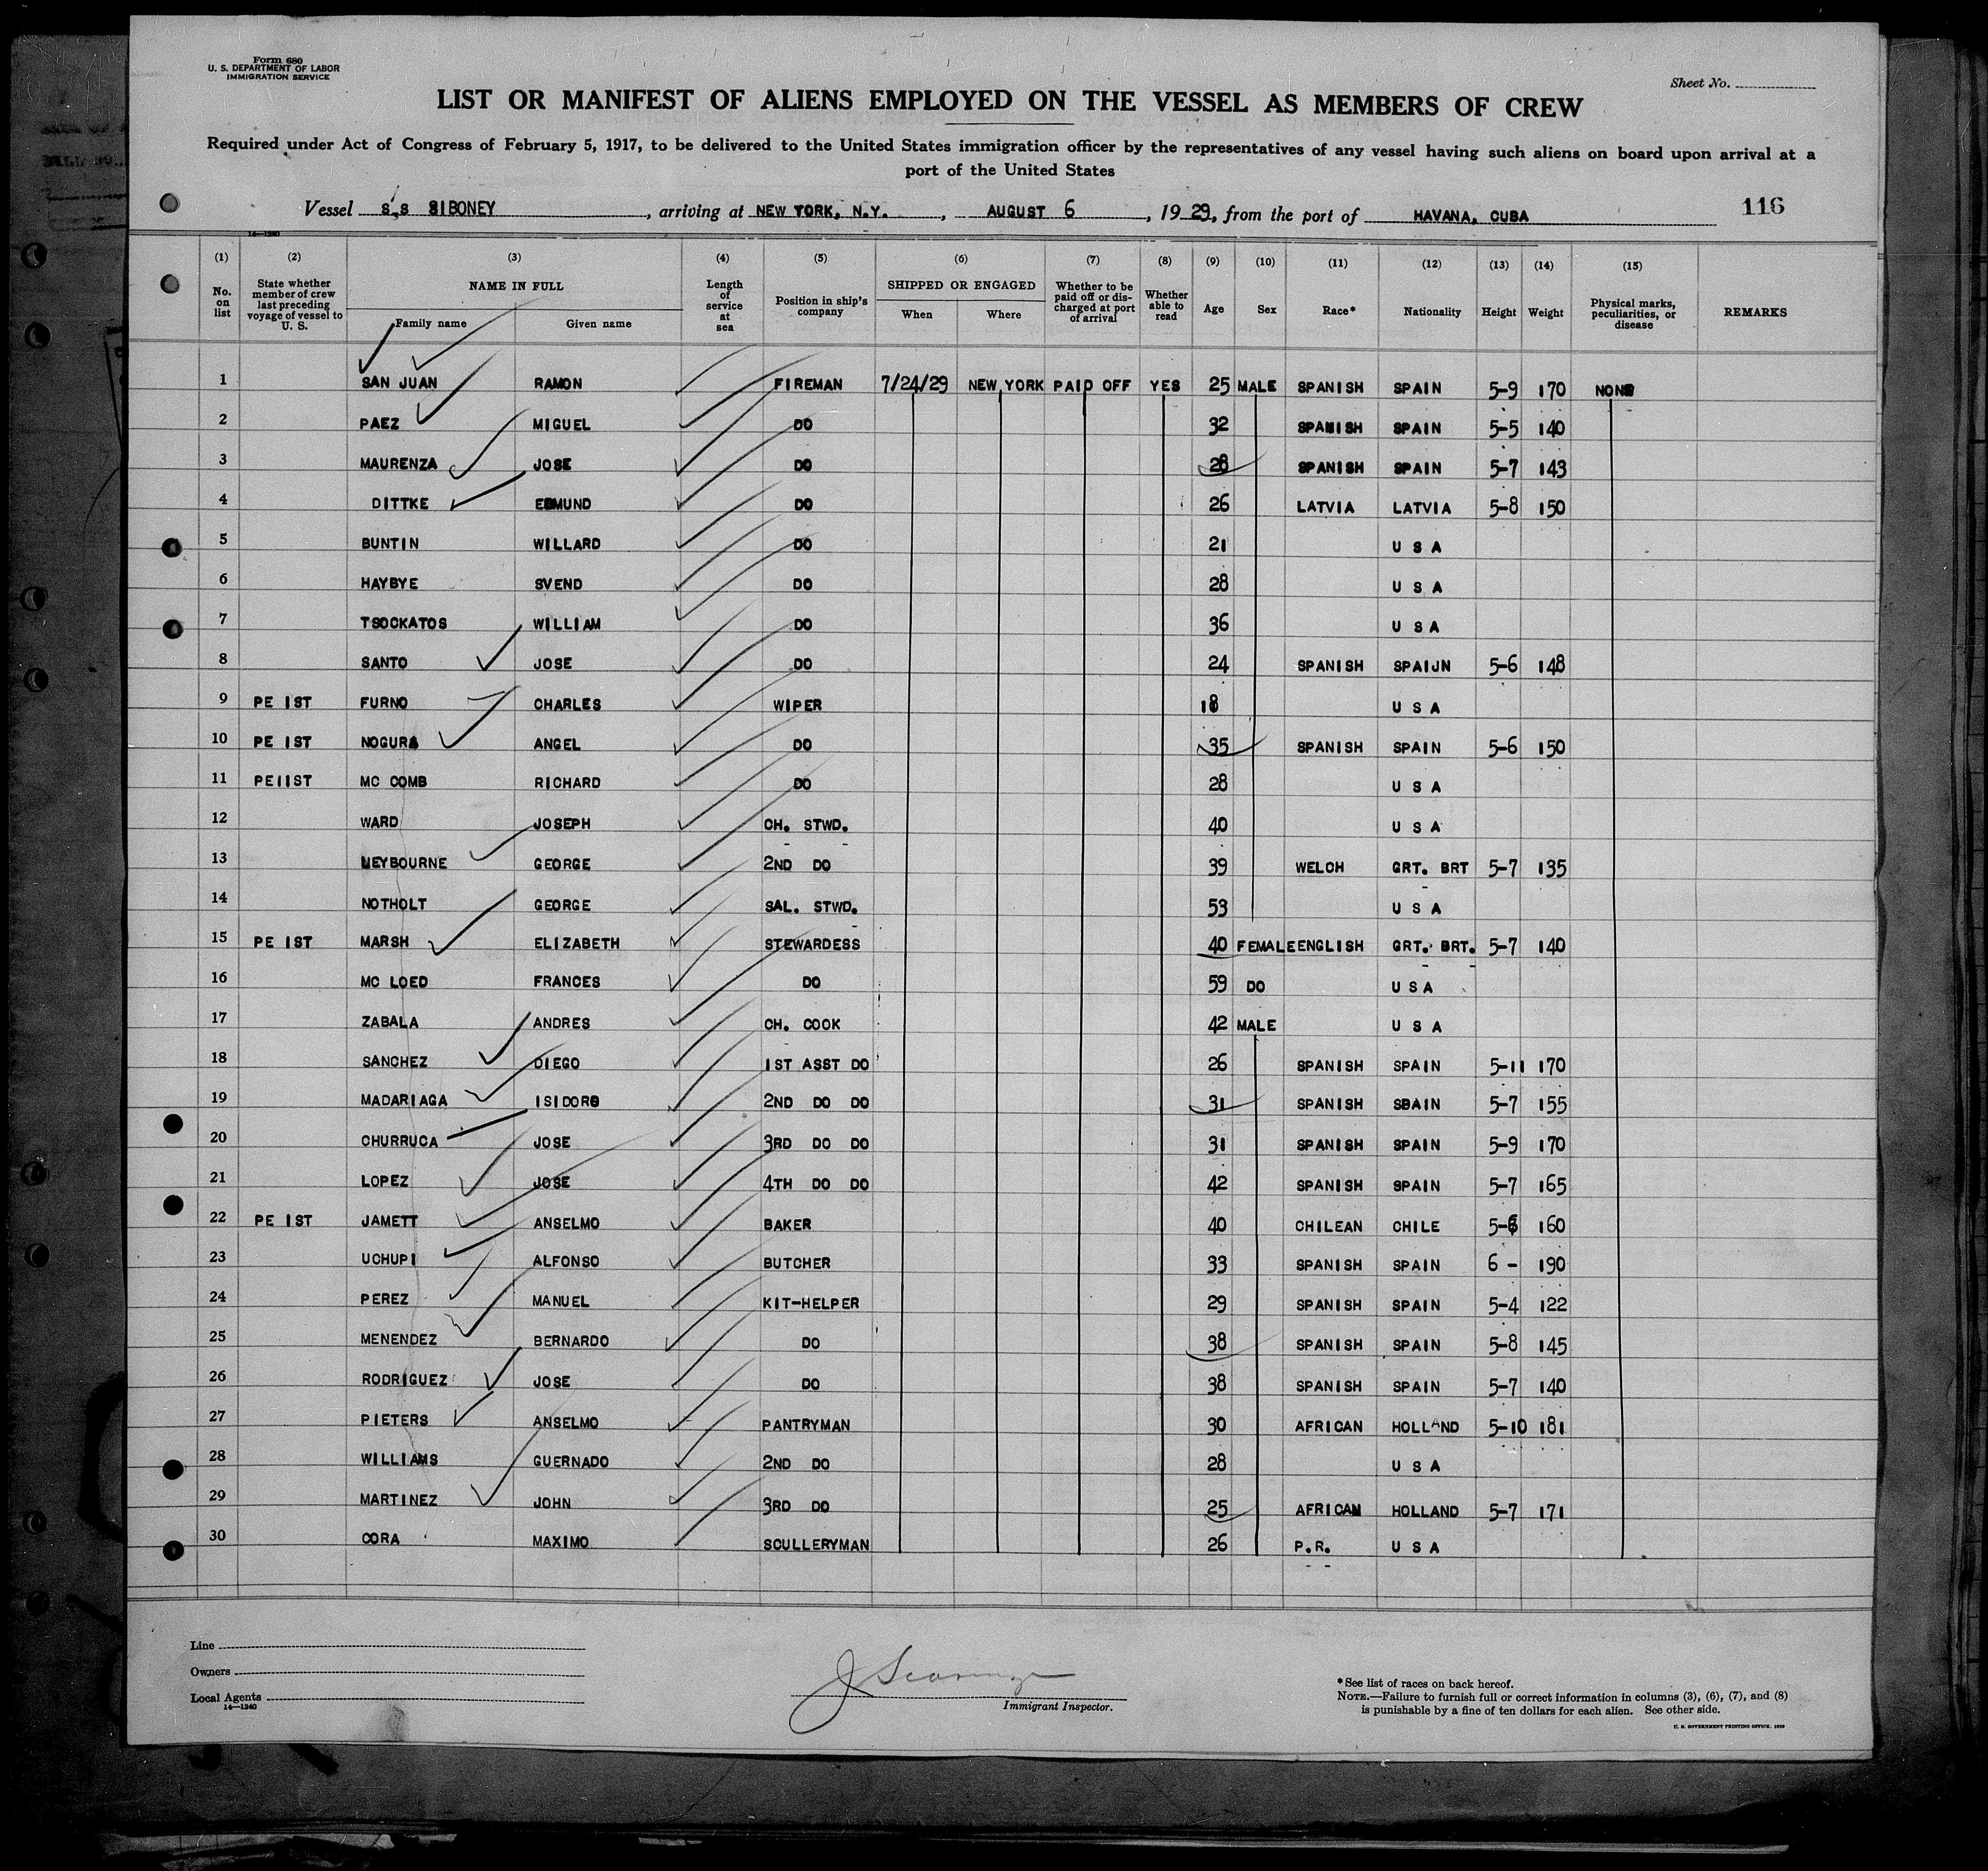 Form 680
U. S. DEPARTMENT OF LABOR
IMMIGRATION SERVICE
Sheet No.
LIST OR MANIFEST OF ALIENS EMPLOYED ON THE VESSEL AS MEMBERS OF CREW
Required under Act of Congress of February 5, 1917, to be delivered to the United States immigration officer by the representatives of any vessel having such aliens on board upon arrival at a
port of the United States
Vessel S.S SIBONEY, arriving at NEW YORK, N.Y., AUGUST 6, 1929, from the port of HAVANA, CUBA
116
14—1240
(1) (2) (3) (4) (5) (6) (7) (8) (9) (10) (11) (12) (13) (14) (15)
No. on list
State whether member of crew last preceding voyage of vessel to U. S.
NAME IN FULL
Family name
Given name
Length of service at sea
Position in ship's company
SHIPPED OR ENGAGED
When
Where
Whether to be paid off or discharged at port of arrival
Whether able to read
Age
Sex
Race*
Nationality
Height
Weight
Physical marks, peculiarities, or disease
REMARKS
1 SAN JUAN RAMON FIREMAN 7/24/29 NEW YORK PAID OFF YES 25 MALE SPANISH SPAIN 5-9 170 NONE
2 PAEZ MIGUEL DO 32 SPANISH SPAIN 5-5 140
3 MAURENZA JOSE DO 28 SPANISH SPAIN 5-7 143
4 DITTKE EDMUND DO 26 LATVIA LATVIA 5-8 150
5 BUNTIN WILLARD DO 21 U S A
6 HAYBYE SVEND DO 28 U S A
7 TSOCKATOS WILLIAM DO 36 U S A
8 SANTO JOSE DO 24 SPANISH SPAIJN 5-6 148
9 PE IST FURNO CHARLES WIPER 18 U S A
10 PE IST NOGURA ANGEL DO 35 SPANISH SPAIN 5-6 150
11 PEIIST MC COMB RICHARD DO 28 U S A
12 WARD JOSEPH CH. STWD. 40 U S A
13 LEYBOURNE GEORGE 2ND DO 39 WELCH GRT. BRT 5-7 135
14 NOTHOLT GEORGE SAL. STWD. 53 U S A
15 PE IST MARSH ELIZABETH STEWARDESS 40 FEMALE ENGLISH GRT. BRT. 5-7 140
16 MC LOED FRANCES DO 59 DO U S A
17 ZABALA ANDRES CH. COOK 42 MALE U S A
18 SANCHEZ DIEGO 1ST ASST DO 26 SPANISH SPAIN 5-11 170
19 MADARIAGA ISIDORO 2ND DO DO 31 SPANISH SBAIN 5-7 155
20 CHURRUCA JOSE 3RD DO DO 31 SPANISH SPAIN 5-9 170
21 LOPEZ JOSE 4TH DO DO 42 SPANISH SPAIN 5-7 165
22 PE IST JAMETT ANSELMO BAKER 40 CHILEAN CHILE 5-6 160
23 UCHUPI ALFONSO BUTCHER 33 SPANISH SPAIN 6 - 190
24 PEREZ MANUEL KIT-HELPER 29 SPANISH SPAIN 5-4 122
25 MENENDEZ BERNARDO DO 38 SPANISH SPAIN 5-8 145
26 RODRIGUEZ JOSE DO 38 SPANISH SPAIN 5-7 140
27 PIETERS ANSELMO PANTRYMAN 30 AFRICAN HOLLAND 5-10 181
28 WILLIAMS GUERNADO 2ND DO 28 U S A
29 MARTINEZ JOHN 3RD DO 25 AFRICAN HOLLAND 5-7 171
30 CORA MAXIMO SCULLERYMAN 26 P.R. U S A
Line
Owners
Local Agents
14—1240
Immigrant Inspector.
*See list of races on back hereof.
NOTE.—Failure to furnish full or correct information in columns (3), (6), (7), and (8)
is punishable by a fine of ten dollars for each alien. See other side.
U. S. GOVERNMENT PRINTING OFFICE. 1929